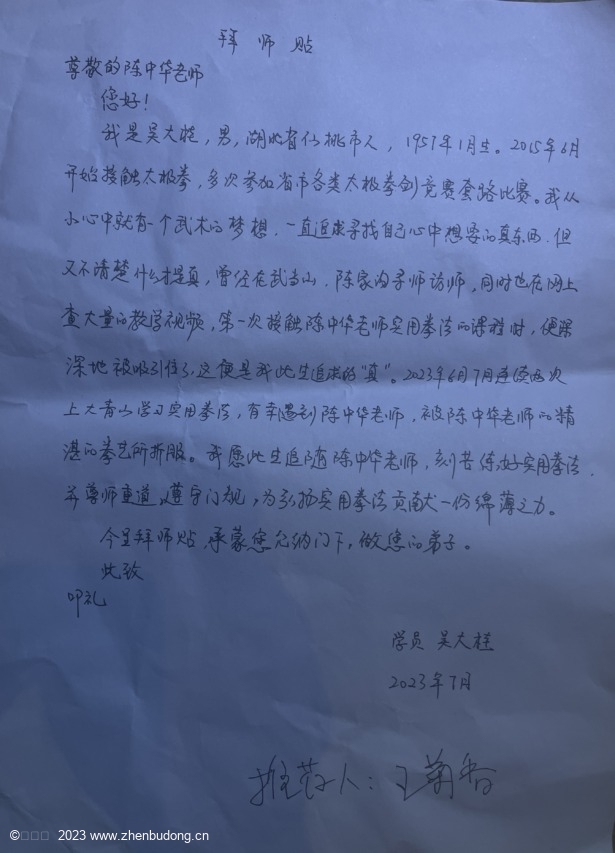 拜师贴
尊敬的陈中华老师
您好！
我是吴大桂，男，湖北省仙桃市人，1957年1月生。2015年6月
开始接触太极拳，多次参加省市各类太极拳剑竞赛套路比赛。我从
小心中就有一个武术的梦想，一直追求寻找自己心中想要的真东西，但
又不清楚什么才是真，曾经在武当山、陈家沟寻师访师，同时也在网上
查大量的教学视频，第一次接触陈中华老师实用拳法的课程时，便深
深地被吸引住了，这便是我此生追求的"真"。2023年6月7月连续两次
上大青山学习实用拳法，有幸遇到陈中华老师，被陈中华老师的精
湛的拳艺所折服。我愿此生追随陈中华老师，刻苦练好实用拳法，
并尊师重道，遵守门规，为弘扬实用拳法贡献一份绵薄之力。
今呈拜师贴，承蒙您允纳门下，做您的弟子。
此致
叩礼
学员 吴大桂
2023年7月
推荐人：王菊香
© 2023 www.zhenbudong.cn